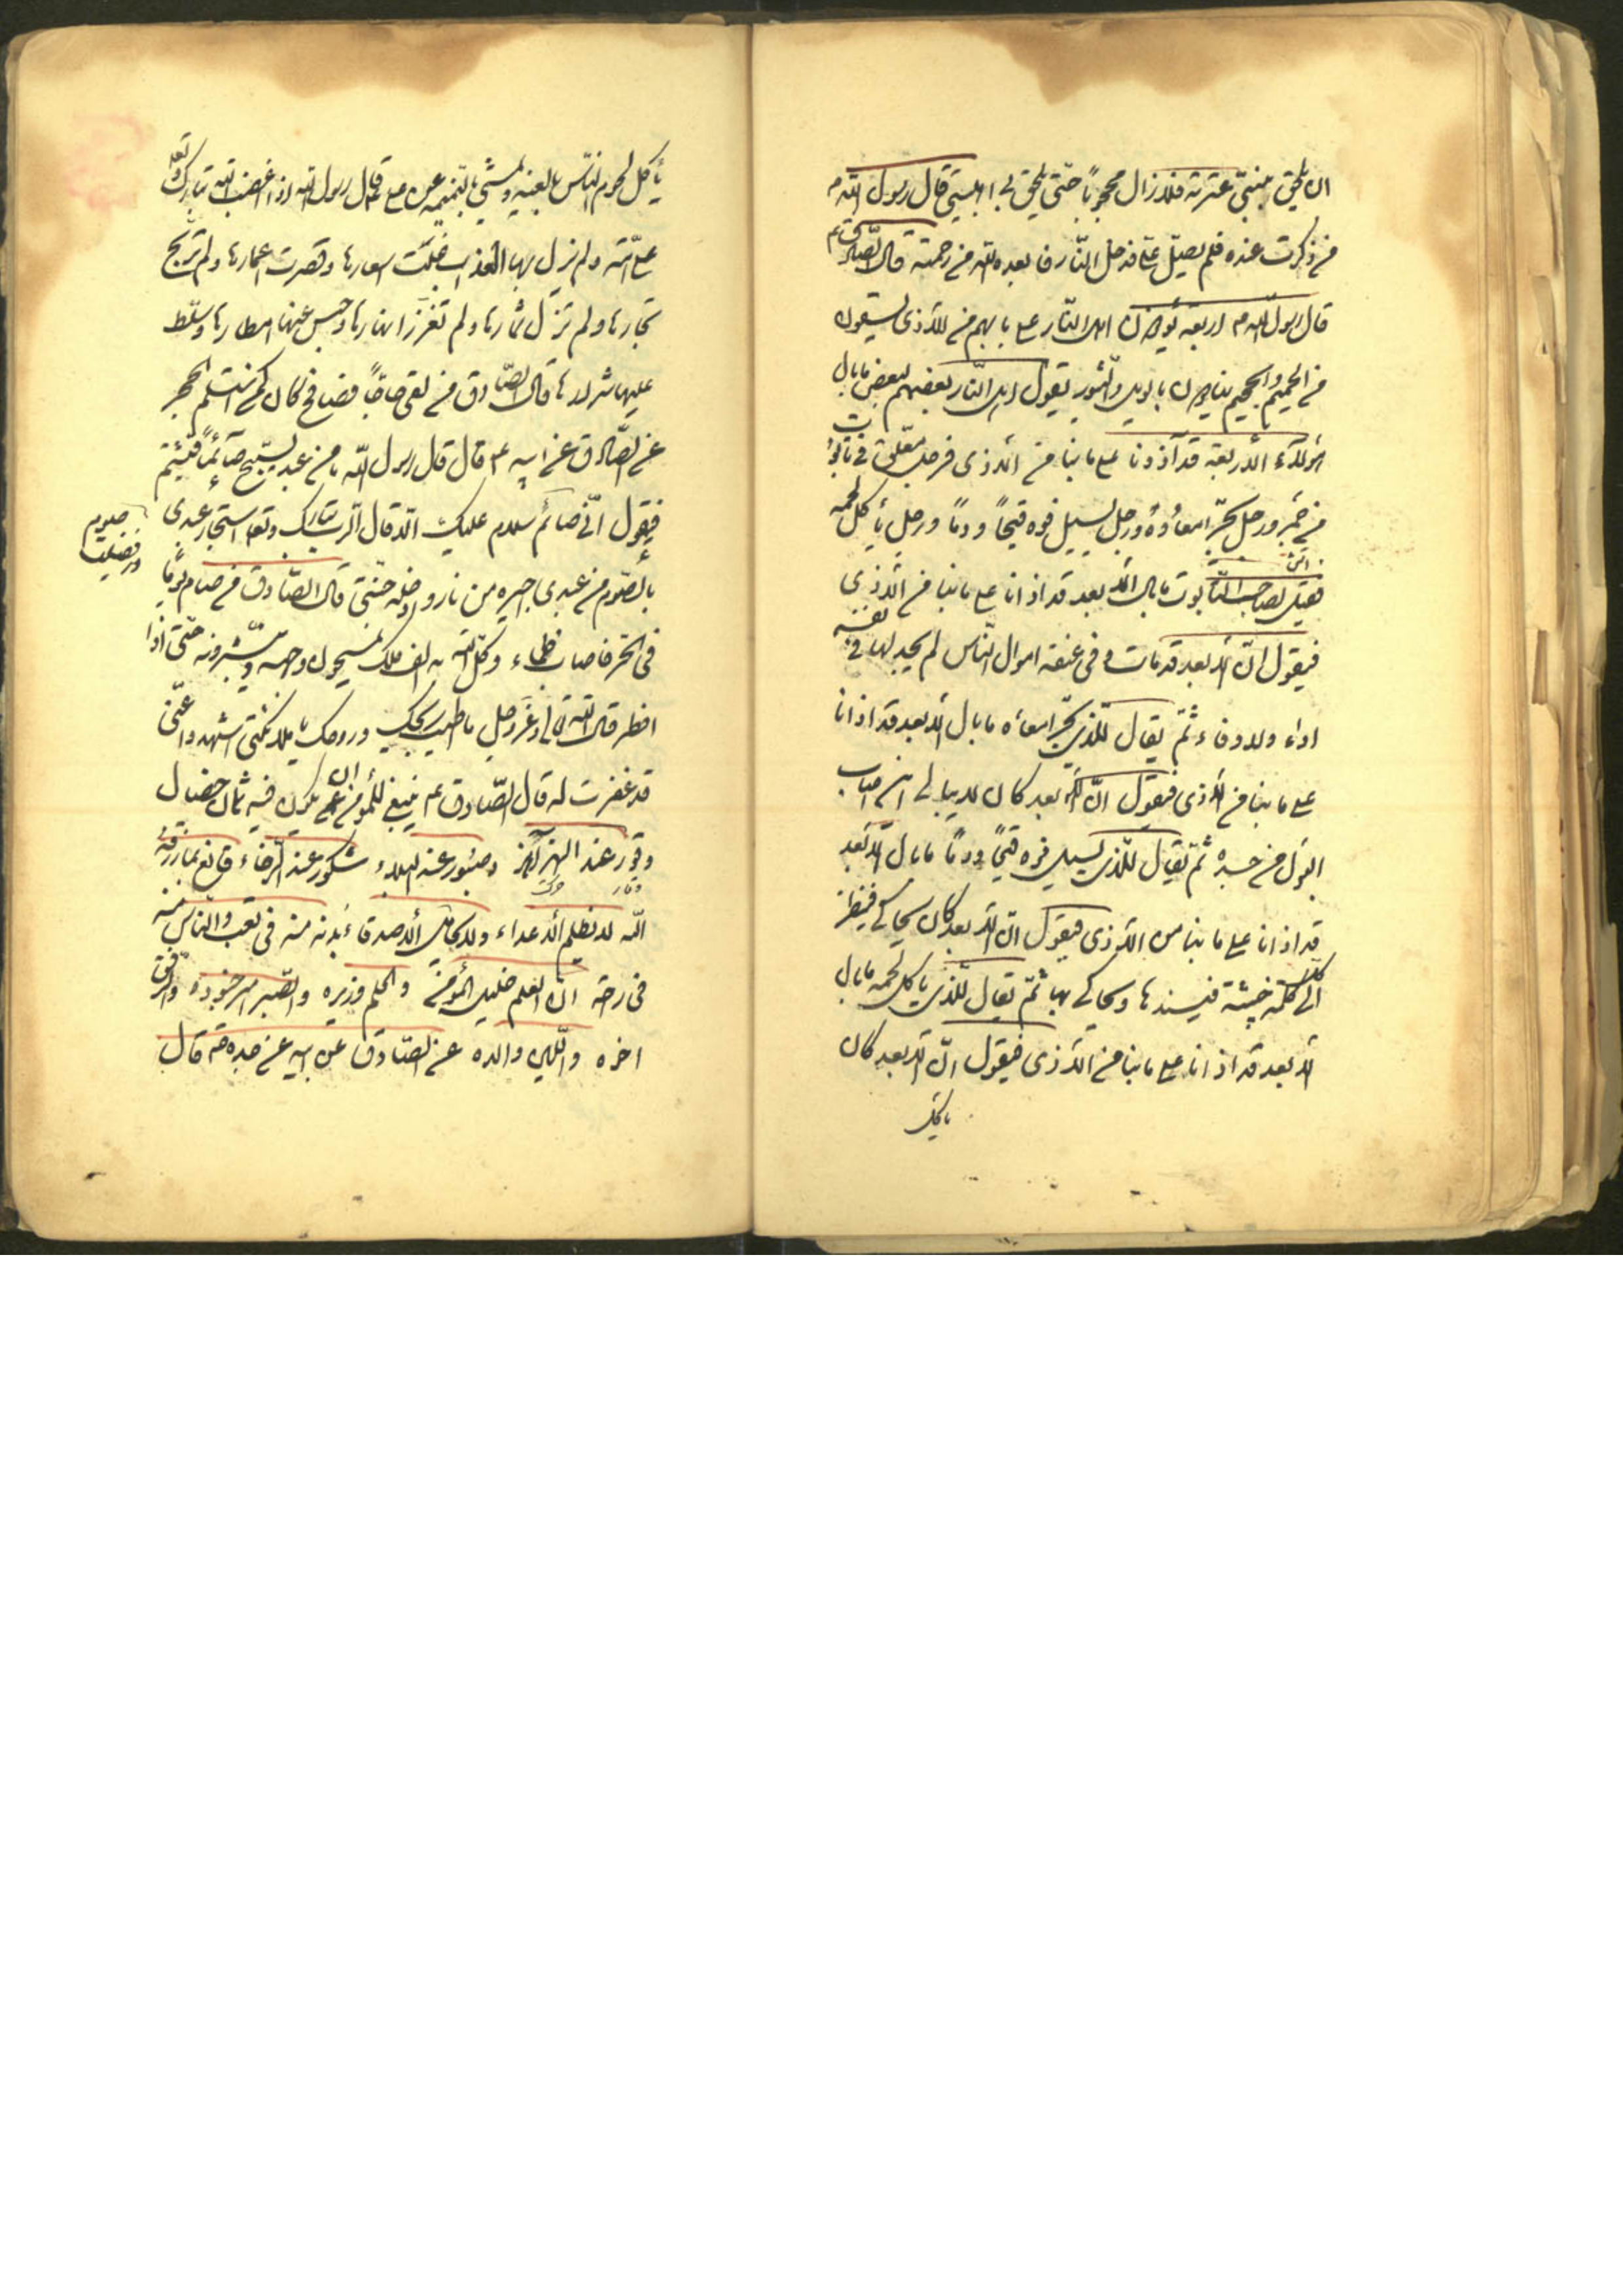 ان يلحق بنبيّ عترته فلا زال محجوباً حتّى يلحق بى اهلبيتى قال رسول الله ص
من ذكرت عنده فلم يصلّ علىّ فدخل النّار فابعده الله من رحمته قال الصّادق عم
قال رسول الله ص اربعة يؤذون اهل النّار على ما بهم من الاذى يسقون
من الحميم والجحيم ينادون بالويل والثبور يقول اهل النّار بعضهم لبعض ما بال
هؤلاء الاربعة قد آذونا على ما بنا من الاذى فرجل معلّق فى تابوت
من جمر ورجل يجرّ امعاؤه ورجل يسيل فوه قيحاً ودمًا ورجل يأكل لحمه
فقيل لصاحب التّابوت ما بال الابعد قد اذانا على ما بنا من الاذى
فيقول انّ الابعد قد مات وفى عنقه اموال النّاس لم يجد لها فى نفسه
اداء ولا وفاء ثمّ يقال للّذى يجرّ امعاءه ما بال الابعد قد اذانا
على ما بنا من الاذى فيقول انّ الابعد كان لا يبالى اين اصاب
البول من جسده ثمّ يقال للّذى يسيل فوه قيحًا ودمًا ما بال الابعد
قد اذانا على ما بنا من الاذى فيقول انّ الابعد كان يحاكى فينظر
الى كلّ كلمة خبيثة فيسندها ويحاكى بها ثمّ يقال للّذى يأكل لحمه ما بال
الابعد قد اذانا على ما بنا من الاذى فيقول انّ الابعد كان
يأكل
يأكل لحوم النّاس بالغيبة ويمشى بالنّميمه عن على ع قال قال رسول الله اذا غضب الله تبارك وتعالى
على امّة ولم ينزل بها العذاب غلت اسعارها وقصرت اعمارها ولم تربح
تجارها ولم تزك ثمارها ولم تغزر انهارها وحبس عنها امطارها وسلّط
عليها شرارها قال الصّادق من لقى حاجّاً فصافحه كان كمن استلم الحجر
عن الصّادق عن ابيه عم قال قال رسول الله ما من عبد يصبح صآئماً فيشتم
فيقول انّى صائم سلام عليك الا قال الرّب تبارك وتعالى استجار عبدى
بالصّوم من عبدى اجيره من نارى وادخله جنّتى قال الصّادق من صام يوماً
صوم
وفضيلت
فى الحرّ فاصاب ظماء وكّل الله به الف ملك يمسحون وجهه ويبشّرونه حتّى اذا
افطر قال الله عزّ وجل ما اطيب ريحك وروحك يا ملائكتى اشهدوا انّى
قد غفرت له قال الصّادق عم ينبغى للمؤمن ان يكون فيه ثمان خصال
وقور عند الهزآهز وصبور عند البلاء شكور عند الرّخاء قانع بما رزقه
الله لا يظلم الاعداء ولا يتحامل الاصدقاء بدنه منه فى تعب والنّاس منه
فى راحة انّ العلم خليل المؤمن والحلم وزيره والصّبر امير جنوده والرّفق
اخوه واللّين والده عن الصّادق عن ابيه عن جدّه قال